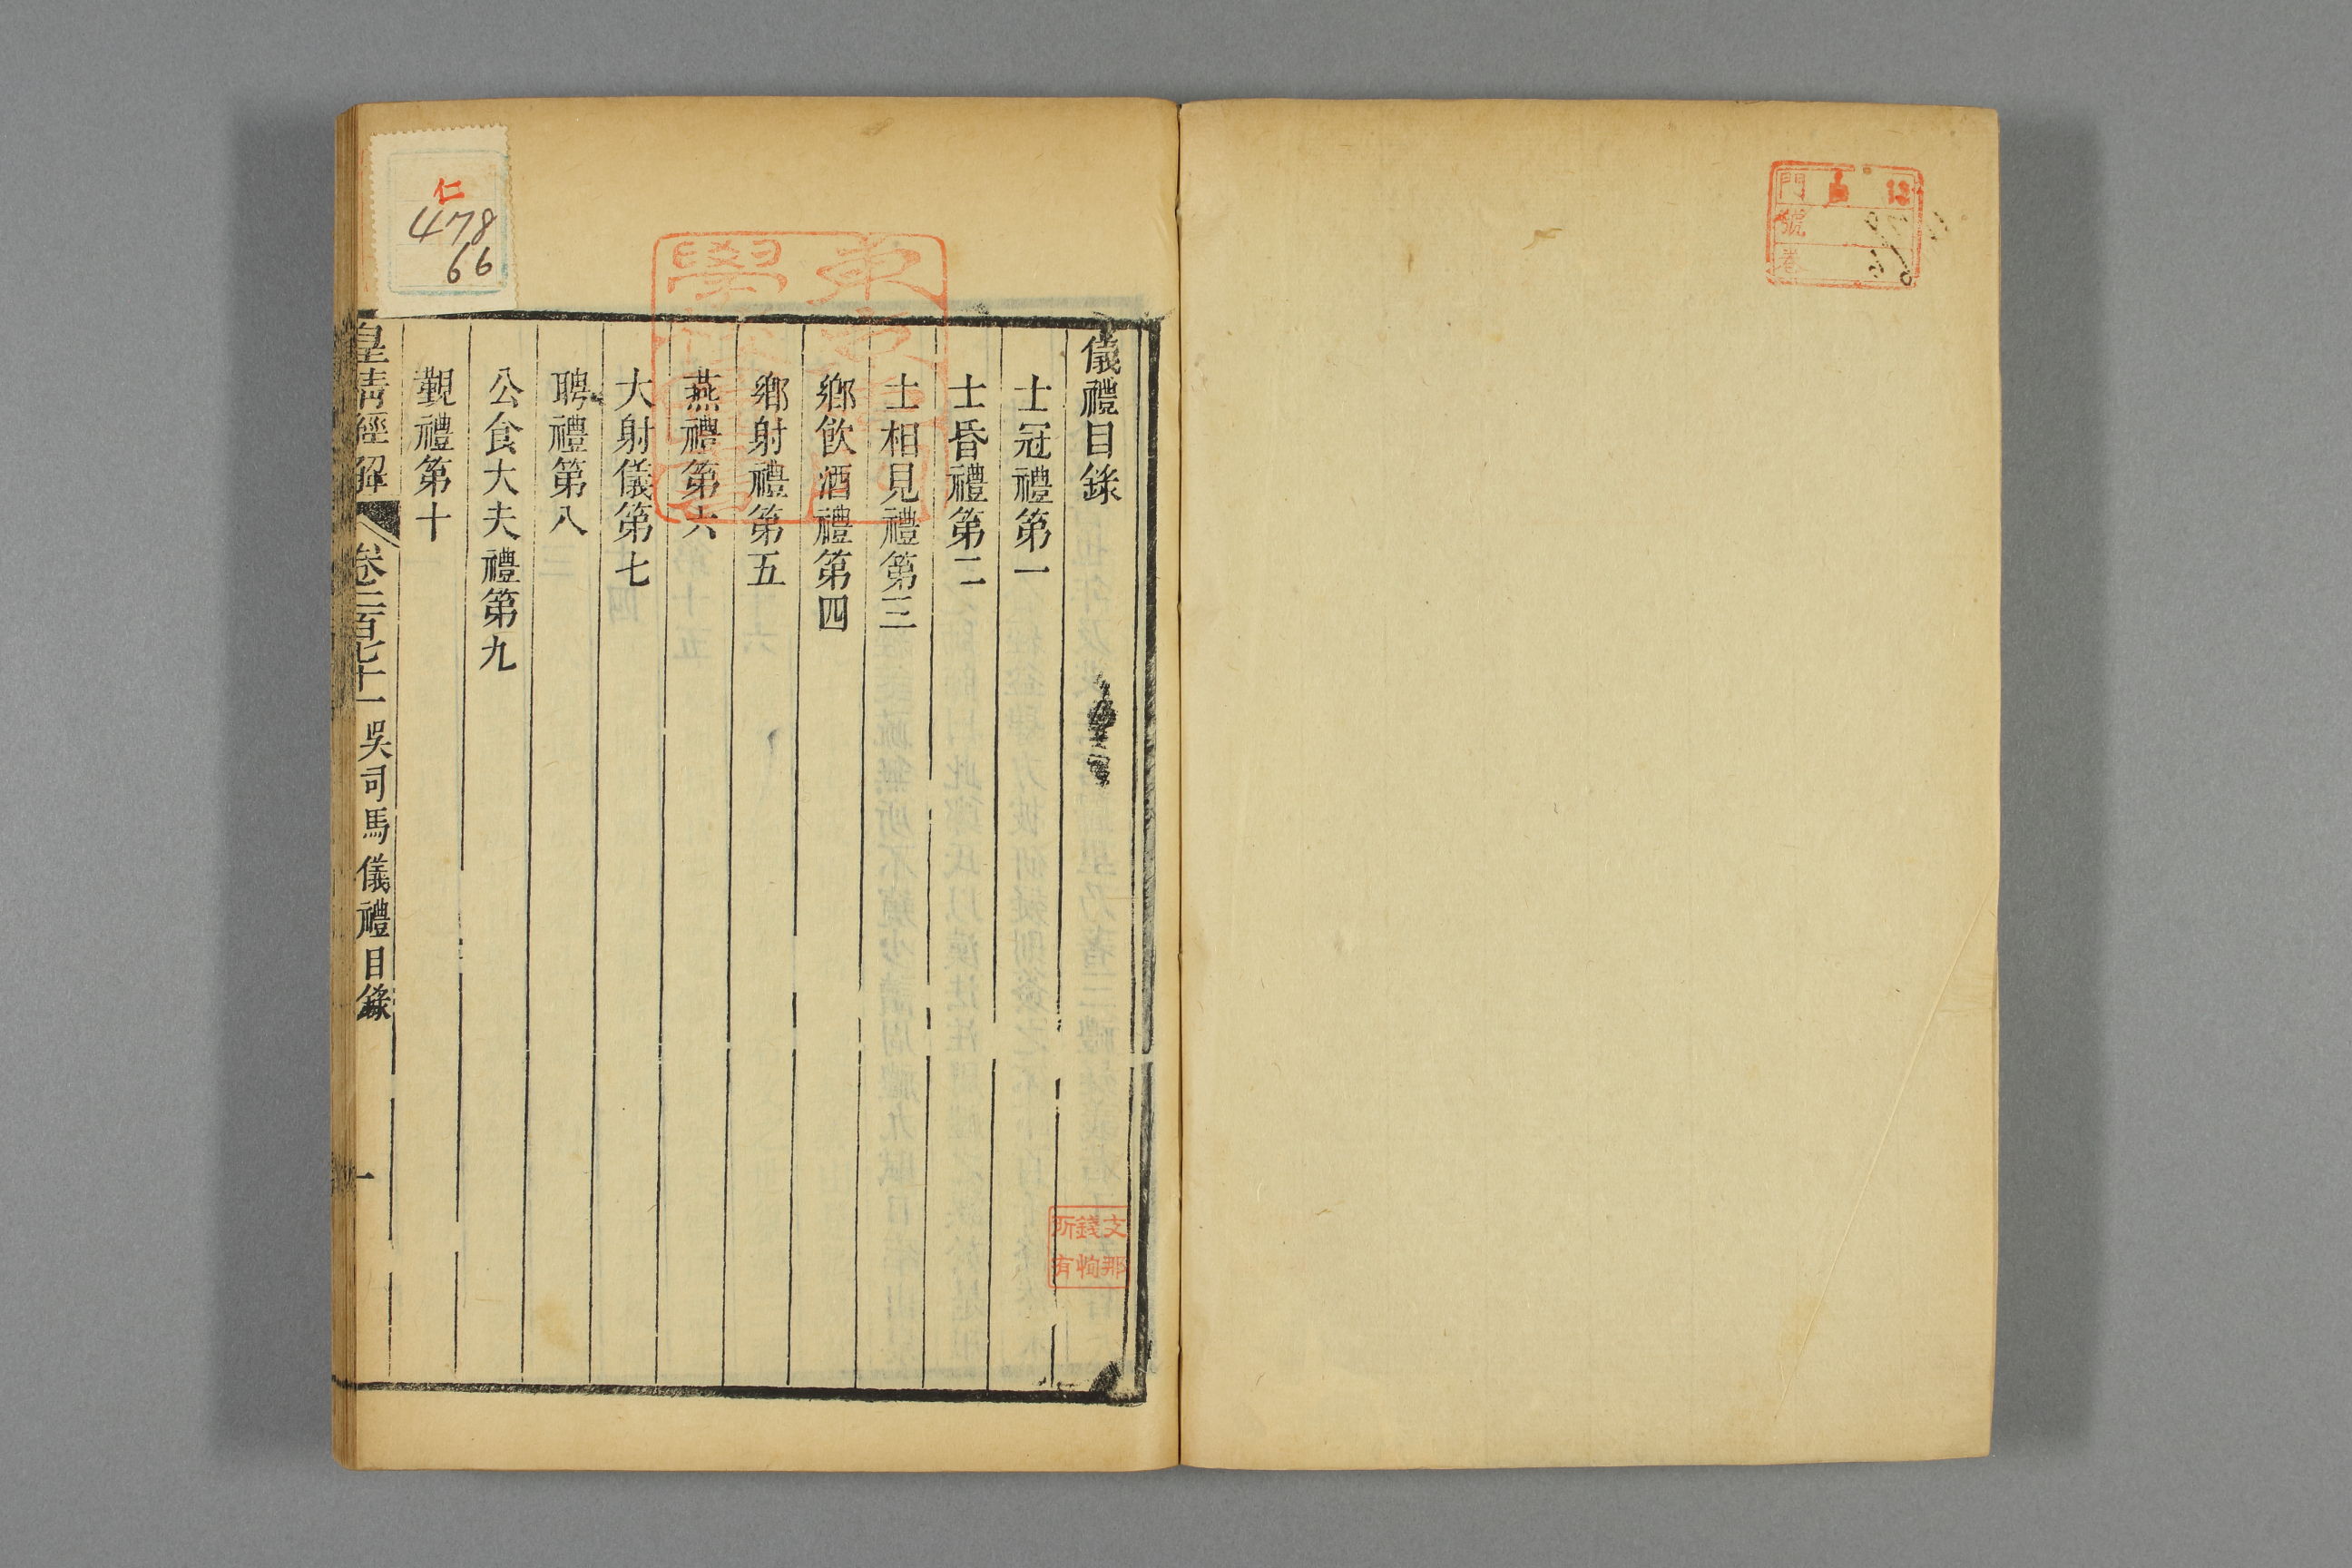 儀禮目錄
士冠禮第一
士昏禮第二
士相見禮第三
鄉飲酒禮第四
鄉射禮第五
燕禮第六
大射儀第七
聘禮第八
公食大夫禮第九
覲禮第十
皇清經解 卷二百七十一 吳司馬儀禮目錄 一
仁
478
66
門
號
卷
支那
錢恂
所有